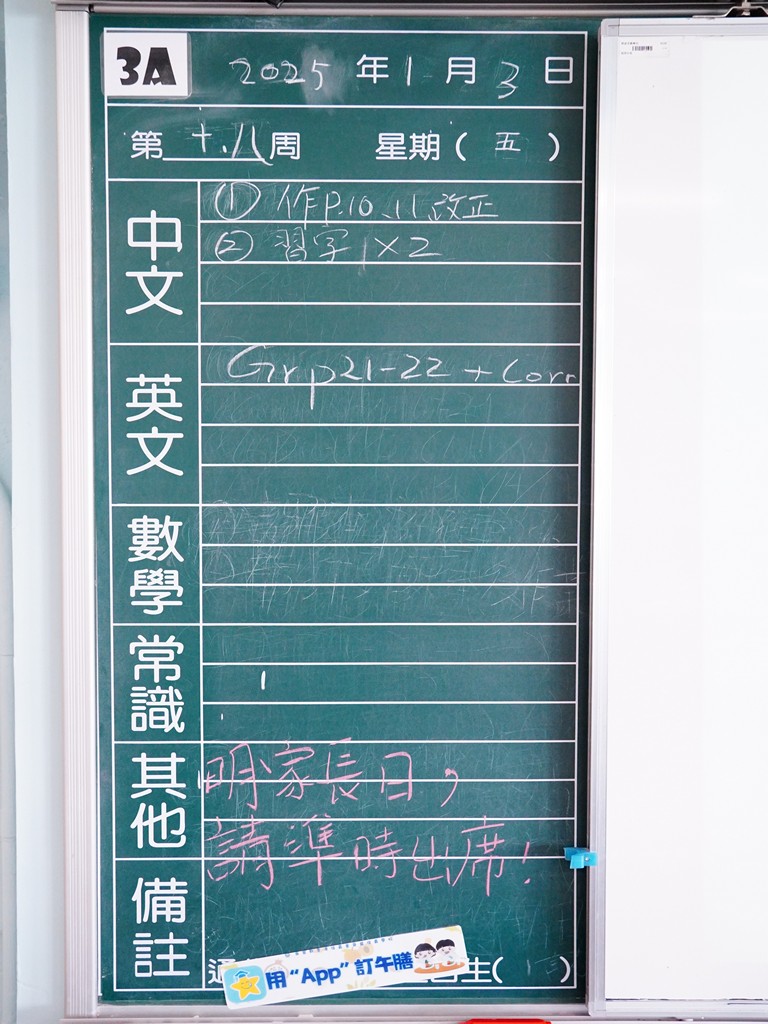 3A 2025年1月3日
第十八周 星期(五)
中文
① 作P.10、11改正
② 習字1×2
英文
Gr p21-22 + Corr
數學
常識
其他
明家長日,
請準時出席!
備註
用“App”訂午膳